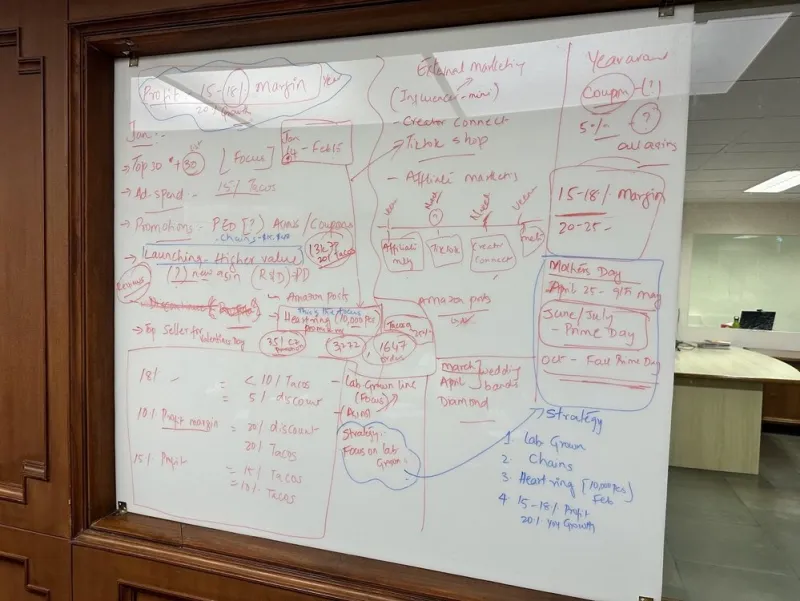 Profit 15-18% margin Year
20% growth
Jan:-
→ Top 30 + 30 [Focus]
Jan
- Feb 15
→ Ad-spend - 15% Tacos
→ Promotions - PED [?] Asins/Coupons
→ Launching - Higher value
(?) new asin (R&D) - PD
13k
20% Tacos
- Amazon posts
This is the focus
→ Heart ring (10,000 Pcs
→ Top Seller for Valentines Day
35%
3,222
1647
order
18% - = <10% Tacos
= 5% discount
10% Profit margin = 20% discount
20% Tacos
15% Profit = 15% Tacos
= 10% Tacos
- Lab Grown line
(Focus)
- (Asins)
Strategy:-
Focus on lab
Grown:-
External marketing
(Influencer - mini)
- Creator connect
- Tiktok shop
- Affiliate marketing
Affiliate
mktg
Tiktok
Creator
Connect
Amazon posts
March
April
wedding
bands
Diamond
Year around
Coupon - (?)
5% - ?
all asins
15-18% Margin
20-25 -
Mothers Day
April 25 - 9th may
June/July
- Prime Day
Oct - Fall Prime Day
Strategy
1. Lab Grown
2. Chains
3. Heart ring [10,000 Pcs]
Feb
4. 15-18% Profit
20% yoy Growth